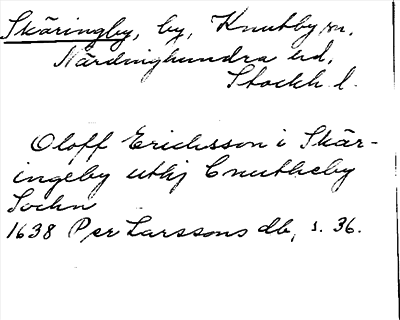 Skäringby, by, Knutby sn,
Närdinghundra hd,
Stockh. l.
Oloff Ericksson i Skär-
ingeby uthj Cnutheby
Sochn
1638 Per Larssons db, s. 36.